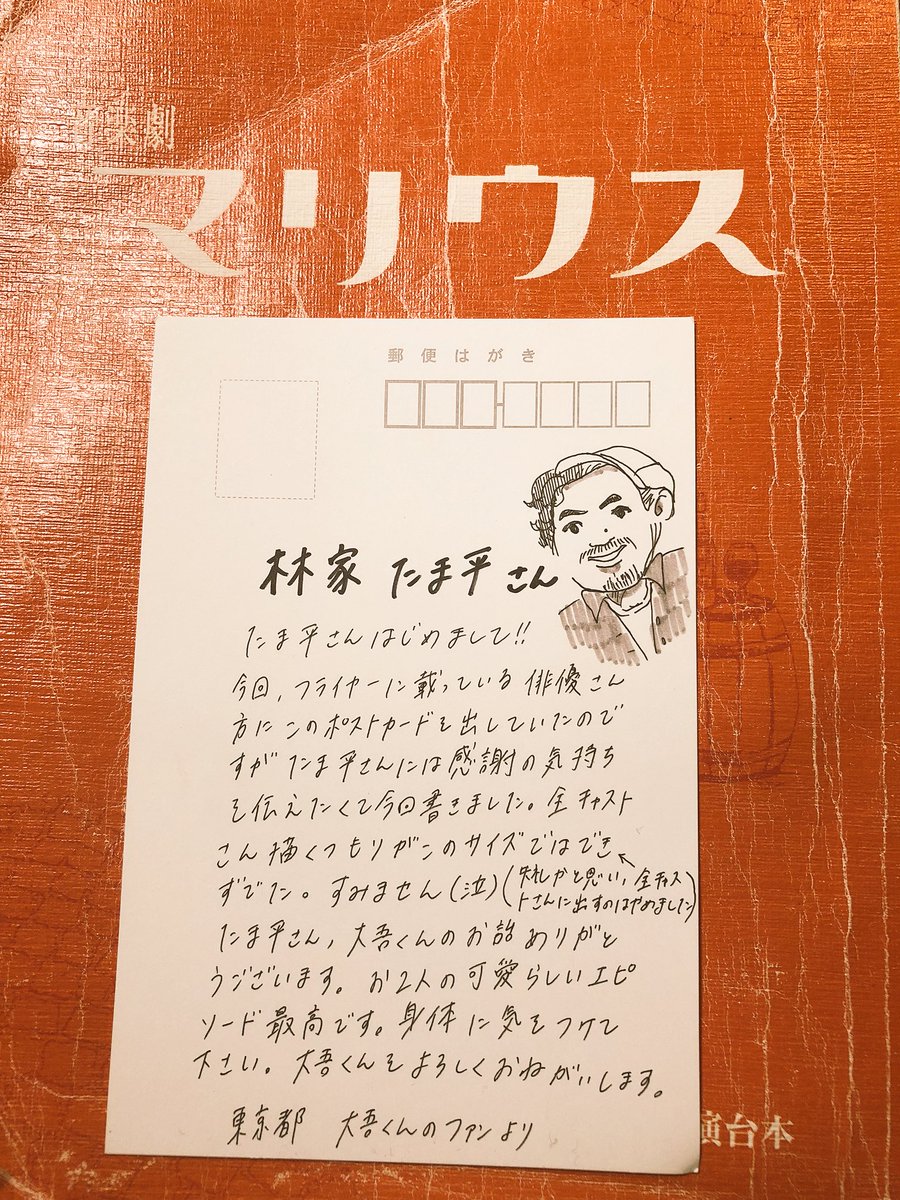 喜劇
マリウス
郵便はがき
林家 たま平さん
たま平さんはじめまして!!
今回、フライヤーに載っている俳優さん
方にこのポストカードを出していたので
すが たま平さんには感謝の気持ち
を伝えたくて今回書きました。全キャスト
さん描くつもりがこのサイズではでき
ずでした。すみません(泣)(失礼かと思い、全キャス
トさんに出すのはやめました)
たま平さん、大吾くんのお話ありがと
うございます。お2人の可愛らしいエピ
ソード最高です。身体に気をつけて
下さい。大吾くんをよろしくおねがいします。
東京都 大吾くんのファンより
演台本